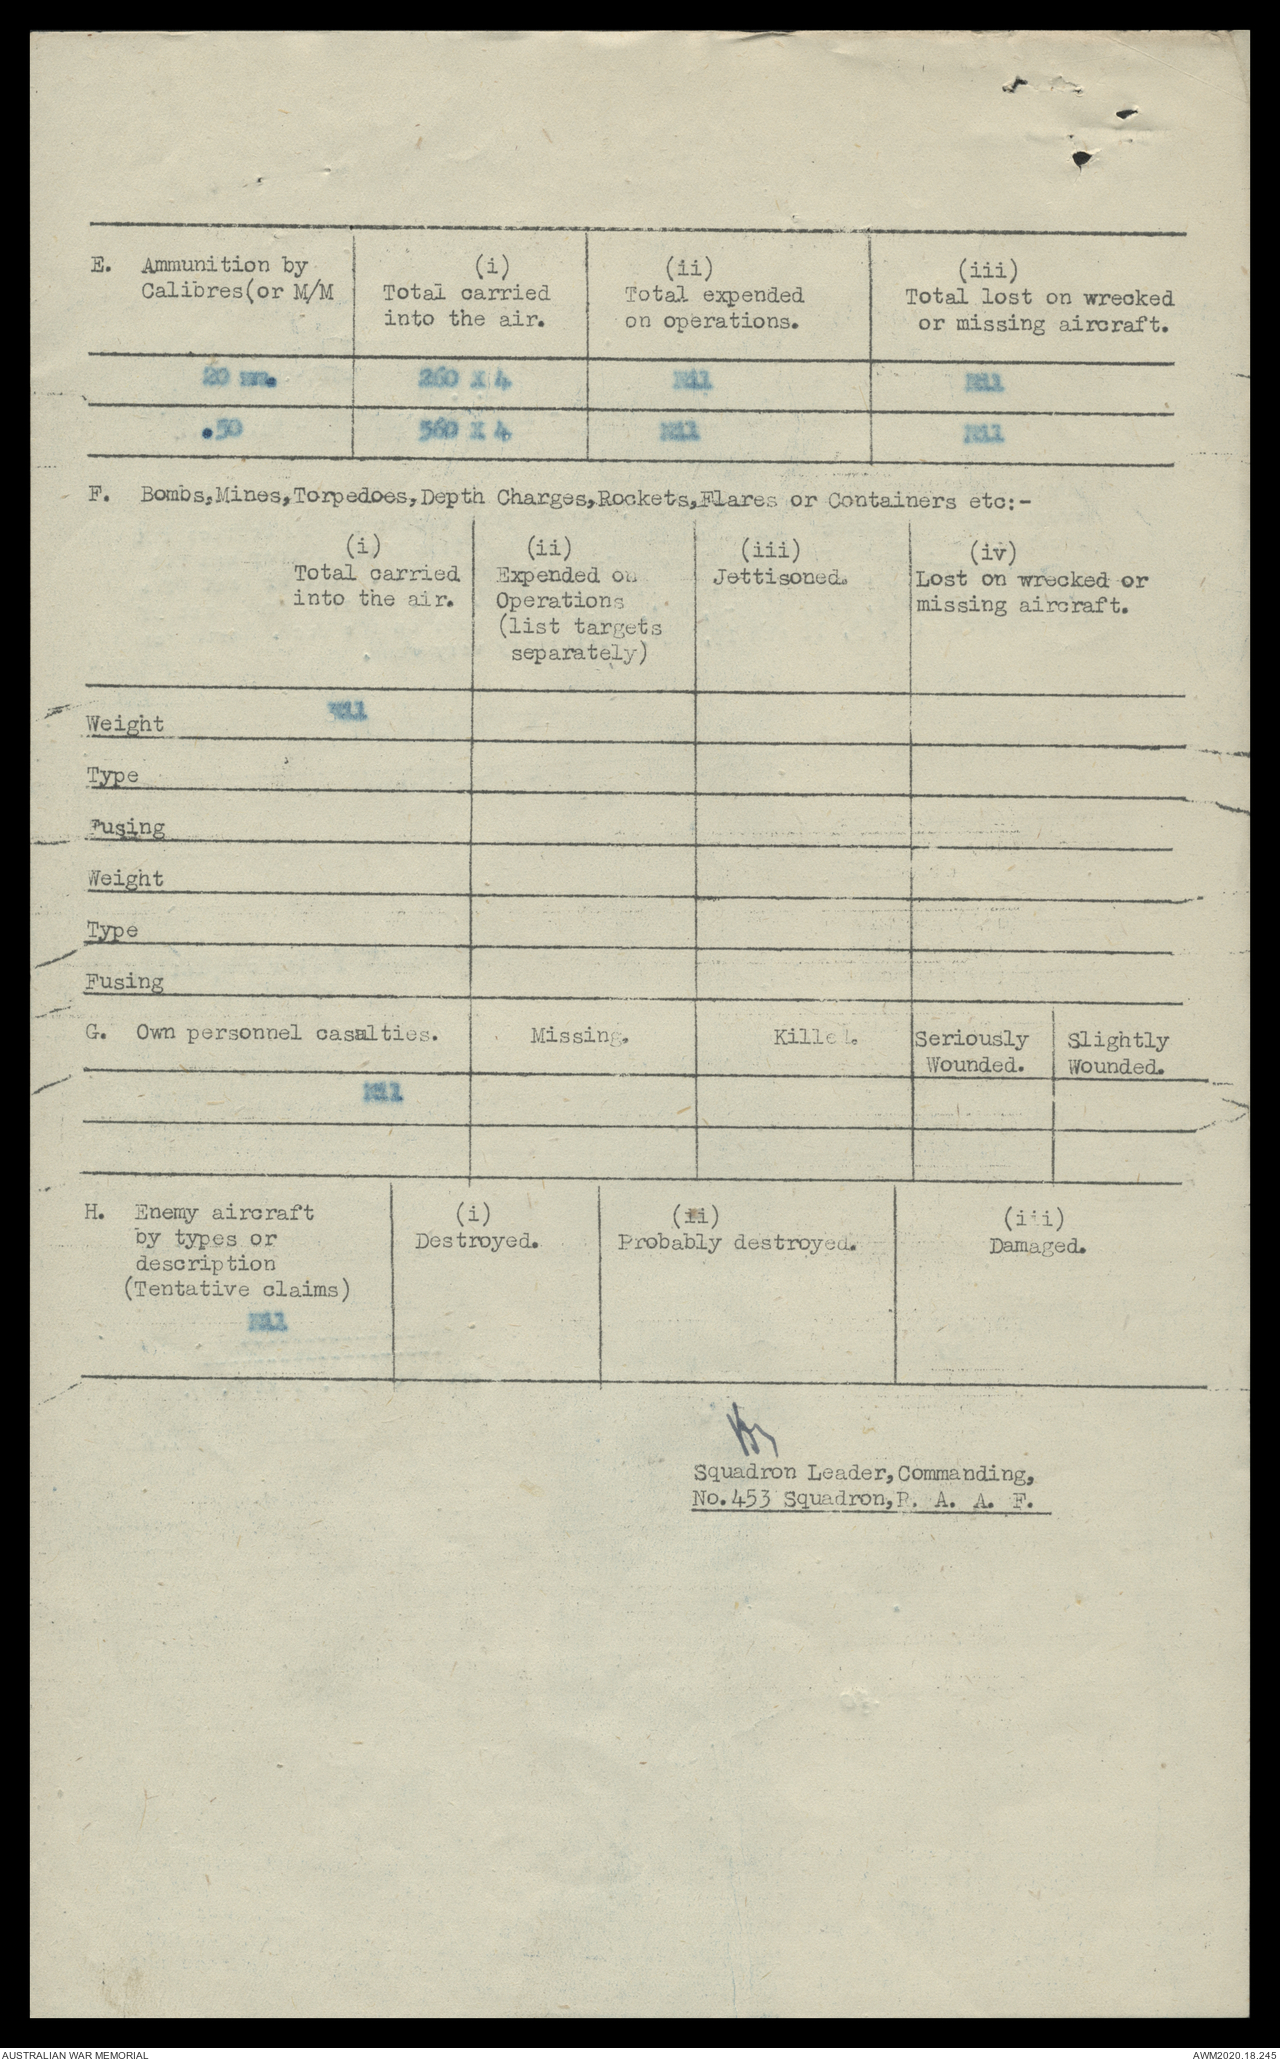 E. Ammunition by Calibres(or M/M
(i) Total carried into the air.
(ii) Total expended on operations.
(iii) Total lost on wrecked or missing aircraft.
20 mm. 260 X 4 Nil Nil
.50 560 X 4 Nil Nil
F. Bombs,Mines,Torpedoes,Depth Charges,Rockets,Flares or Containers etc:-
(i) Total carried into the air.
(ii) Expended on Operations (list targets separately)
(iii) Jettisoned.
(iv) Lost on wrecked or missing aircraft.
Weight Nil
Type
Fusing
Weight
Type
Fusing
G. Own personnel casalties. Missing. Killed. Seriously Wounded. Slightly Wounded.
Nil
H. Enemy aircraft by types or description (Tentative claims)
(i) Destroyed.
(ii) Probably destroyed.
(iii) Damaged.
Nil
Squadron Leader,Commanding,
No.453 Squadron,R. A. A. F.
AUSTRALIAN WAR MEMORIAL
AWM2020.18.245